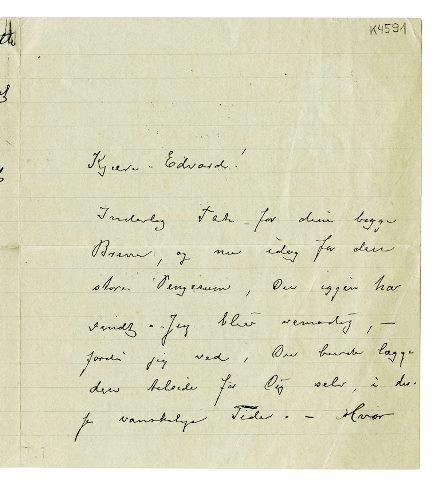 K4591
Kjære Edvard!
Inderlig Tak for dine begge
Breve, og nu idag for den
store Pengesum, Du iggen har
sendt. Jeg blev vemodig, –
fordi jeg ved, Du burde lægge
den tilside for Dig selv, i dis-
se vanskelige Tider. – Hvor